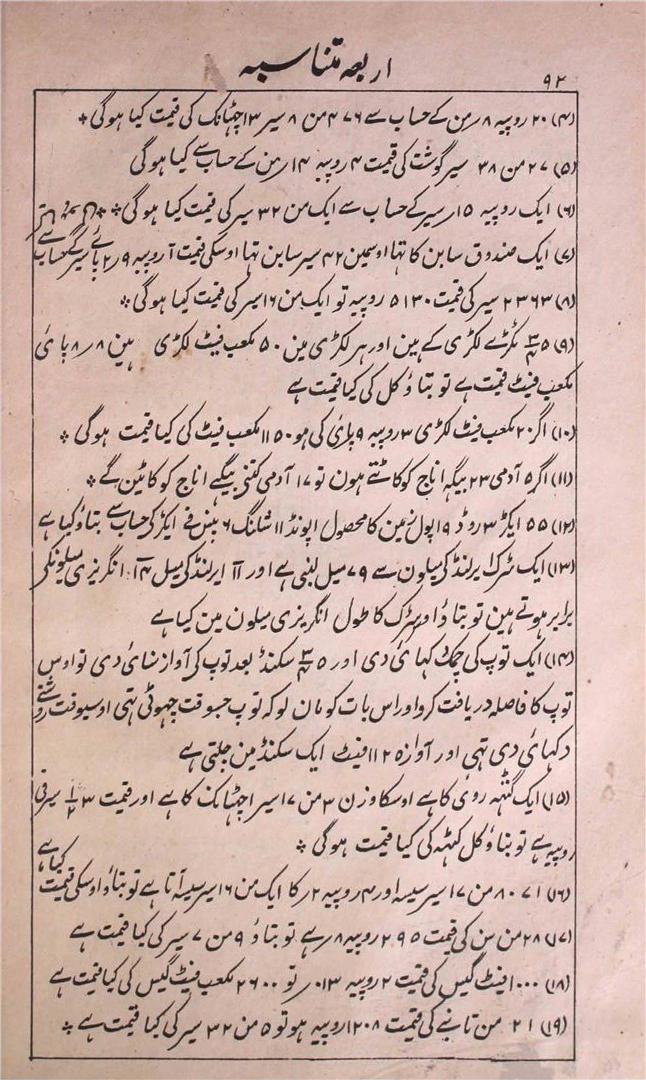 ۹۲
اربعہ متناسبہ
(۴) ۲۰ روپیہ ۸ رمن کے حساب سے ۴۷۶ من ۸ سیر ۱۳ چہٹانک کی قیمت کیا ہو گی *
(۵) ۲۷ من ۳۸ سیر گوشت کی قیمت ۴ روپیہ ۱۴ رمن کے حساب سے کیا ہو گی
(۶) ایک روپیہ ۱۵ ر سیر کے حساب سے ایک من ۳۲ سیر کی قیمت کیا ہو گی *
(۷) ایک صندوق سابن کا تہا اوسمین ۴۲ سیر سابن تہا اوسکی قیمت ۱ روپیہ ۹ ر ۲ پائے سیر کے حساب سے
(۸) ۲۳۶۳ سیر کی قیمت ۵۱۳۰ روپیہ تو ایک من ۱۶ سیر کی قیمت کیا ہو گی *
(۹) ۵ ۳/۴ ٹکڑے لکڑی کے ہین اور ہر لکڑی مین ۵۰ مکعب فیٹ لکڑی ہین ۸ ر ۸ پائی
مکعب فیٹ قیمت ہے تو بتاؤ کل کی کیا قیمت ہے
(۱۰) اگر ۲۰ مکعب فیٹ لکڑی ۳ روپیہ ۹ پائی کی ہو ۱۱۵۰ مکعب فیٹ کی کیا قیمت ہو گی *
(۱۱) اگر ۵ آدمی ۲۳ بیگہ اناج کو کاٹتے ہون تو ۱۷ آدمی کتنی بیگہے اناج کو کاٹین گے *
(۱۲) ۵۵ ایکڑ ۳ روڈ ۱۹ پول زمین کا محصول ۱ پونڈ ۱۱ شلنگ ۶ پنس فے ایکڑ کی حساب سے بتاؤ کیا ہے
(۱۳) ایک سڑک ایرلنڈ کی میلون سے ۷۹ میل لنبی ہے اور ۱۱ ایرلنڈ کی میل ۱۴ انگریزی میلونکی
برابر ہوتے ہین تو بتاؤ اوس سڑک کا طول انگریزی میلون مین کیا ہے
(۱۴) ایک توپ کی چمک دکہائی دی اور ۵ ۳/۴ سکنڈ بعد توپ کی آواز سنائی دی تو اوس
توپ کا فاصلہ دریافت کرو اور اس بات کو مان لو کہ توپ جسوقت چہوٹی تہی اوسیوقت روشنی
دکہائی دی تہی اور آواز ۱۱۲۵ فیٹ ایک سکنڈ مین چلتی ہے
(۱۵) ایک گٹہہ روئی کا ہے اوسکا وزن ۳ من ۱۷ سیر ۱ چہٹانک کا ہے اور قیمت ۳ ۱/۲ سیر فی
روپیہ ہے تو بتاؤ کل گٹہہ کی کیا قیمت ہو گی *
(۱۶) ۸۰۷۱ من ۱۷ سیر سیسہ اور ۴ روپیہ ۲ ر کا ایک من ۱۶ سیر سیسہ آتا ہے تو بتاؤ اوسکی قیمت کیا ہے
(۱۷) ۲۸ من سن کی قیمت ۲۹۵ روپیہ ۸ ر ہے تو بتاؤ ۹ من ۷ سیر کی کیا قیمت ہے
(۱۸) ۱۰۰۰ فیٹ گیس کی قیمت ۲ روپیہ ۱۳ ر تو ۲۶۰۰ مکعب فیٹ گیس کی کیا قیمت ہے
(۱۹) ۲۱ من تانبے کی قیمت ۱۲۰۸ روپیہ ہو تو ۵ من ۳۲ سیر کی کیا قیمت ہے *